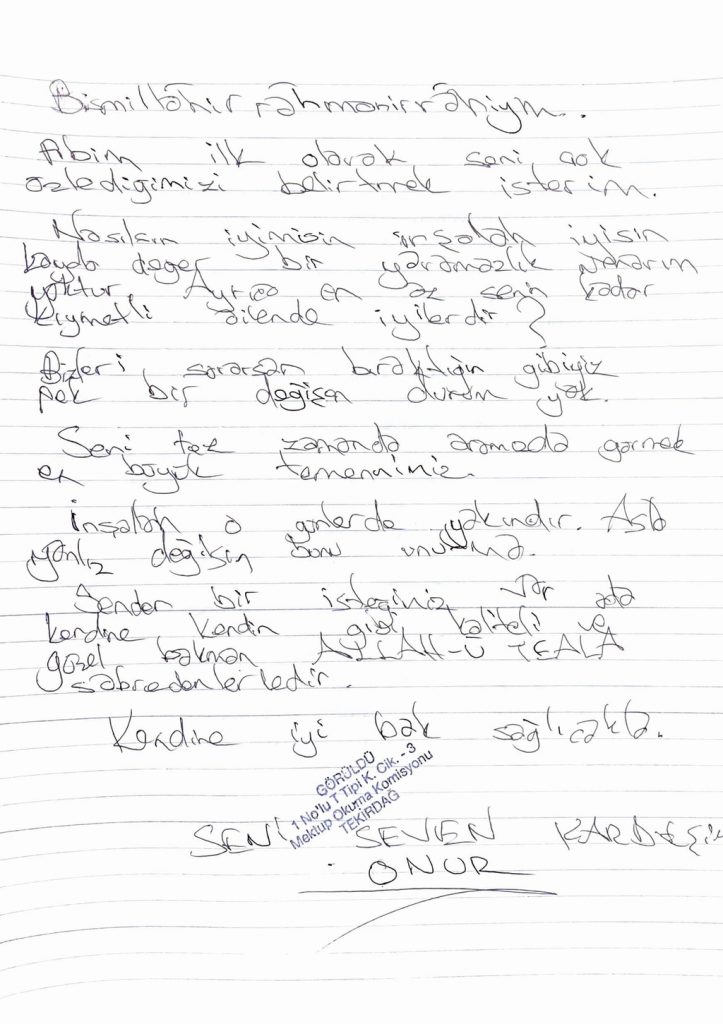 Bismillahir rahmanirrahiym.
Abim ilk olarak seni çok
özlediğimizi belirtmek isterim.
Nasılsın iyimisin inşalah iyisin
kayda değer bir yaramazlık umarım
yoktur Ayrıca en az senin kadar
kıymetli ailende iyilerdir?
Bizleri sorarsan bıraktığın gibiyiz
pek bir değişen durum yok.
Seni tez zamanda aramada görmek
en büyük temennimiz.
İnşalah o günlerde yakındır. Asla
yanlız değilsin bunu unutma.
Senden bir isteğimiz var oda
kendine kendin gibi kaliteli ve
güzel bakman ALLAH-Ü TEALA
sabredenlerledir.
Kendine iyi bak sağlıcakla.
GÖRÜLDÜ
1 No'lu T Tipi K. Cik. - 3
Mektup Okuma Komisyonu
TEKİRDAĞ
SENİ SEVEN KARDEŞİN
ONUR